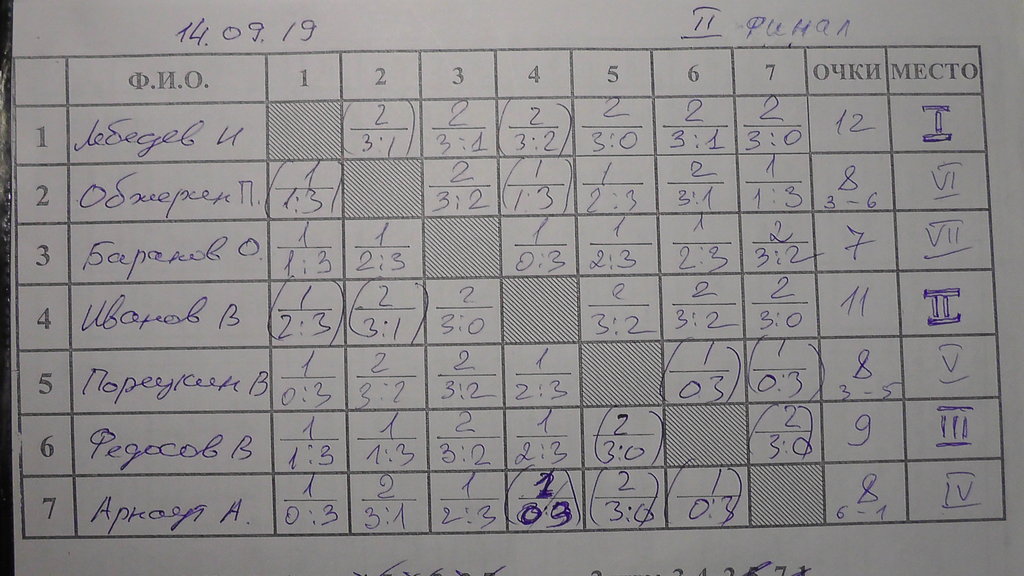 14.09.19 II финал
Ф.И.О. 1 2 3 4 5 6 7 ОЧКИ МЕСТО
1 Лебедев И (2/3:1) 2/3:1 (2/3:2) 2/3:0 2/3:1 2/3:0 12 I
2 Обжерин П. (1/1:3) 2/3:2 (1/1:3) 1/2:3 2/3:1 1/1:3 8 3-6 VI
3 Баранов О. 1/1:3 1/2:3 1/0:3 1/2:3 1/2:3 2/3:2 7 VII
4 Иванов В (1/2:3) (2/3:1) 2/3:0 2/3:2 2/3:2 2/3:0 11 II
5 Порецкин В 1/0:3 2/3:2 2/3:2 1/2:3 (1/03) (1/0:3) 8 3-5 V
6 Федосов В 1/1:3 1/1:3 2/3:2 1/2:3 (2/3:0) (2/3:0) 9 III
7 А. 1/0:3 2/3:1 1/2:3 (1/03) (2/3:0) (1/0:3) 8 6-1 IV